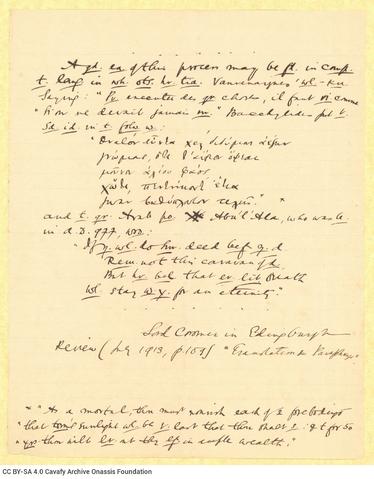 A gd. ea. of this process may be fd. in comp.
t. lang. in wh. ots. hv. tra. Vauvenargues' wl.-kn.
Saying: "Pr. executer des gr. choses, il faut vi. comme
"si on ne devait jamais m." Bacchylides put t.
Sa. id. in t. folg. w.:
"Θνατὸν εὖντα χρὴ διδύμους ἀέξειν
γνώμας, ὅτι τ' αὔριον ὄψεαι
μοῦνον ἁλίου φάος
χὤτι πεντήκοντ' ἔτεα
ζωὰν βαθύπλουτον τελεῖς." *
and t. gr. Arab po. Abul'Ala, who was b.
in A.D. 977, wro.:
"If y. wl. do sm. deed bef. y. d.
Rem. not this caravan of d.
But hv. bel. that ev. lit. breath
Wl. stay w. y. for an eternity."
Lord Cromer in Edinburgh
Review (July 1913, p. 109) "Translation & Paraphrase"
* "As a mortal, thou must nourish each of 2 forebodings
"that tom's sunlight wl. be t. last that thou shalt s. & t. for 50
"yrs. thou wilt lv. out thy lf. in ample wealth."
CC BY-SA 4.0 Cavafy Archive Onassis Foundation